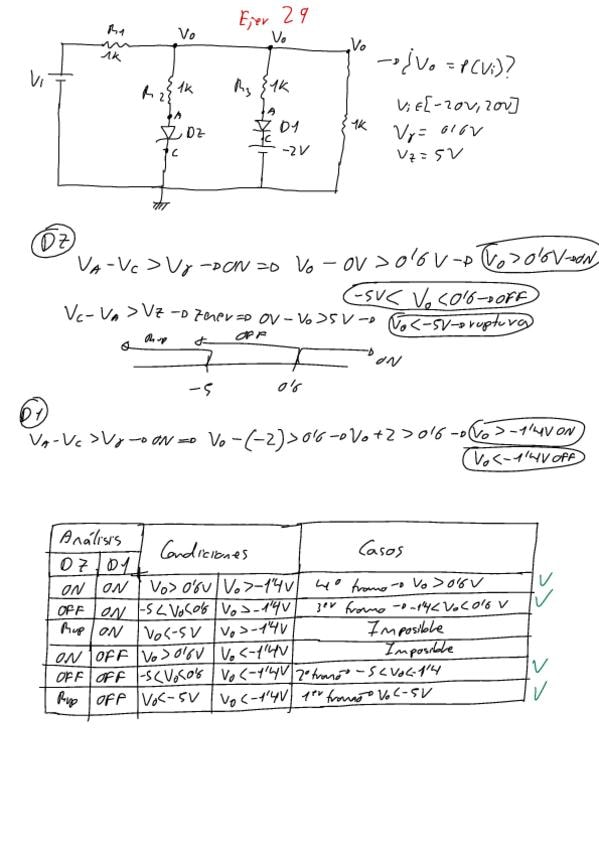 Ejer 29
R1
1K
Vo
Vo
Vo
Vi
R2
1K
A
DZ
C
R3
1K
A
D1
C
-2V
1K
→ ¿Vo = f(Vi)?
Vi ∈ [-20V, 20V]
Vγ = 0'6V
Vz = 5V
DZ
VA - VC > Vγ → ON => Vo - 0V > 0'6V → Vo > 0'6V → ON
-5V < Vo < 0'6 → OFF
VC - VA > VZ → Zener => 0V - Vo > 5V → Vo < -5V → ruptura
Rup OFF ON
-5 0'6
D1
VA - VC > Vγ → ON => Vo - (-2) > 0'6 → Vo + 2 > 0'6 → Vo > -1'4V ON
Vo < -1'4V OFF
Análisis Condiciones Casos
DZ D1
ON ON Vo > 0'6V Vo > -1'4V 4º tramo → Vo > 0'6V ✓
OFF ON -5 < Vo < 0'6 Vo > -1'4V 3er tramo → -1'4 < Vo < 0'6 V ✓
Rup ON Vo < -5V Vo > -1'4V Imposible
ON OFF Vo > 0'6V Vo < -1'4V Imposible
OFF OFF -5 < Vo < 0'6 Vo < -1'4V 2º tramo → -5 < Vo < -1'4 ✓
Rup OFF Vo < -5V Vo < -1'4V 1er tramo → Vo < -5V ✓